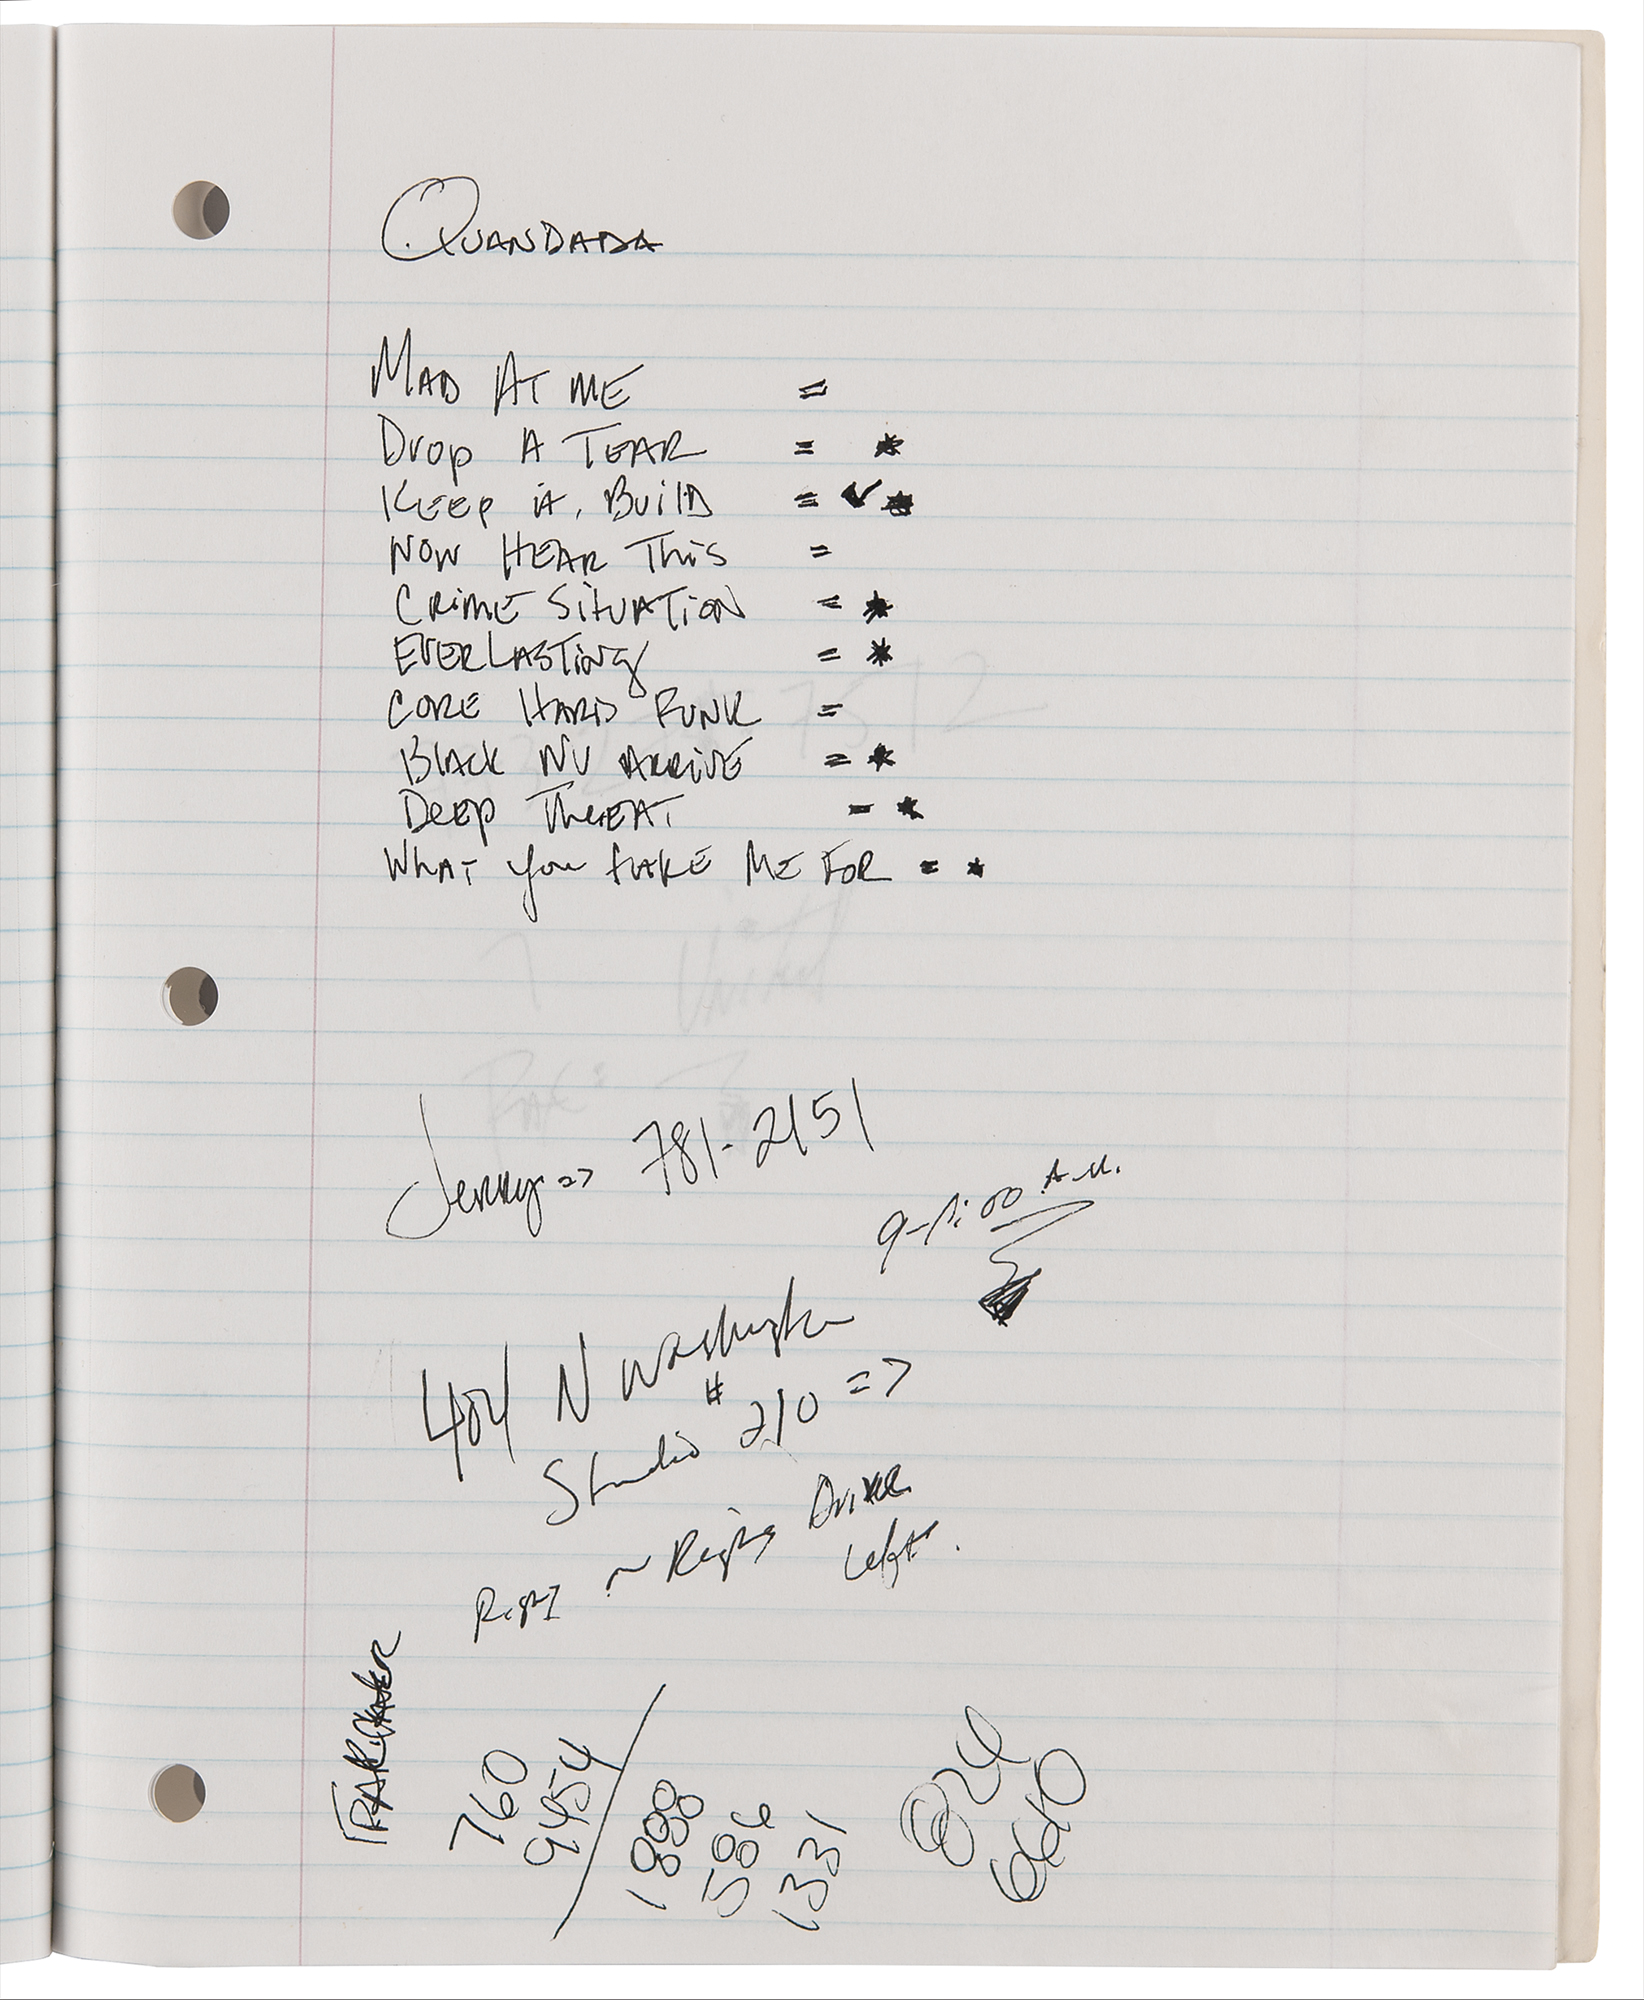 QUANDADA
MAD AT ME =
Drop A TEAR = *
KEEP it, Build = ✓ *
NOW HEAR This =
CRiME SiTUATiON = *
EVERLASTiNg = *
CORE HARD FUNK =
BlACK NU ARRIVE = *
DEEP ThrEAT = *
WhAT you TAKE ME FOR = *
Jerry => 781-2151
9-1:00 A.M.
404 N Washington
Studio # 210 =>
Right Driver
Right
Left.
760
9454
1888
586
1331
824
6610